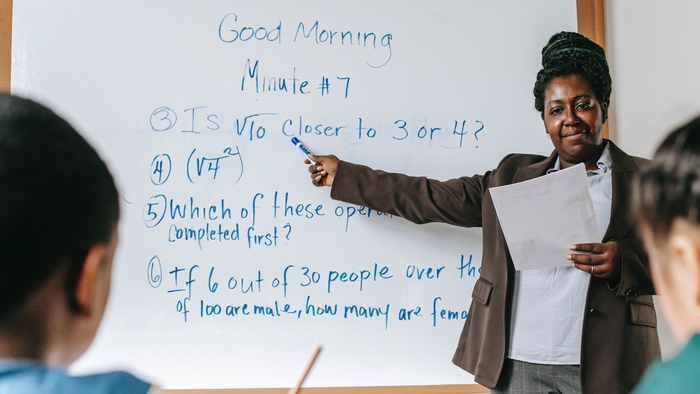 Good Morning
Minute #7
③ Is √10 closer to 3 or 4?
④ (√4²)
⑤ Which of these
completed first?
⑥ If 6 out of 30 people over
of 100 are male, how many are